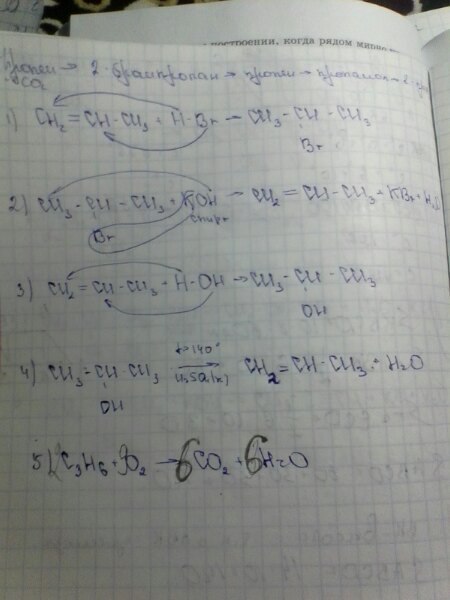 построении, когда рядом мирно
пропен → 2-бромпропан → пропен → пропанол-2 →
CO2
1) CH2 = CH - CH3 + H - Br → CH3 - CH - CH3
Br
2) CH3 - CH - CH3 + KOH → CH2 = CH - CH3 + KBr + H2O
Br
спирт
3) CH2 = CH - CH3 + H - OH → CH3 - CH - CH3
OH
4) CH3 - CH - CH3 t>140° H2SO4(к) → CH2 = CH - CH3 + H2O
OH
5) 2C3H6 + 9O2 → 6CO2 + 6H2O